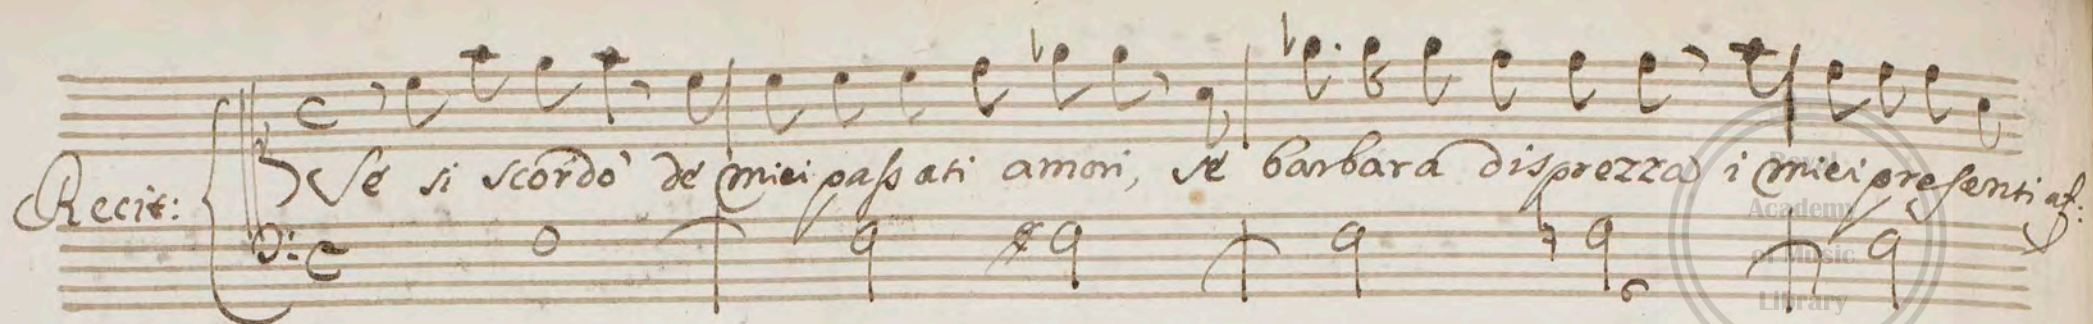 Recit: Se si scordò de miei passati amori, se barbara disprezza i miei presenti af:
Royal
Academy
of Music
Library